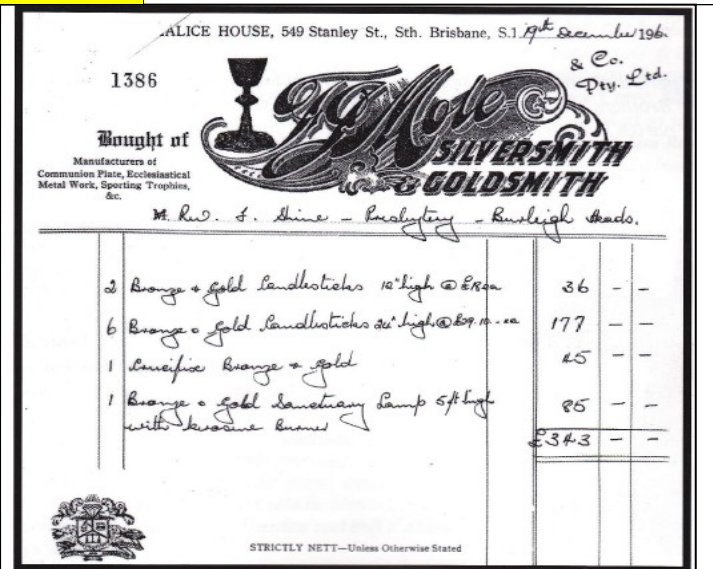 ALICE HOUSE, 549 Stanley St., Sth. Brisbane, S.1. 19th December 196
1386
& Co.
Pty. Ltd.
Bought of
F J Mole
SILVERSMITH
& GOLDSMITH
Manufacturers of
Communion Plate, Ecclesiastical
Metal Work, Sporting Trophies,
&c.
M Rev. F. Shine - Presbytery - Burleigh Heads.
2 Bronze & Gold Candlesticks 12" high @ £18 ea 36 - -
6 Bronze & Gold Candlesticks 24" high @ £29.10 - ea 177 - -
1 Crucifix Bronze & Gold 45 - -
1 Bronze & Gold Sanctuary Lamp 5ft high 85 - -
with kerosine Burner
£343 - -
STRICTLY NETT—Unless Otherwise Stated